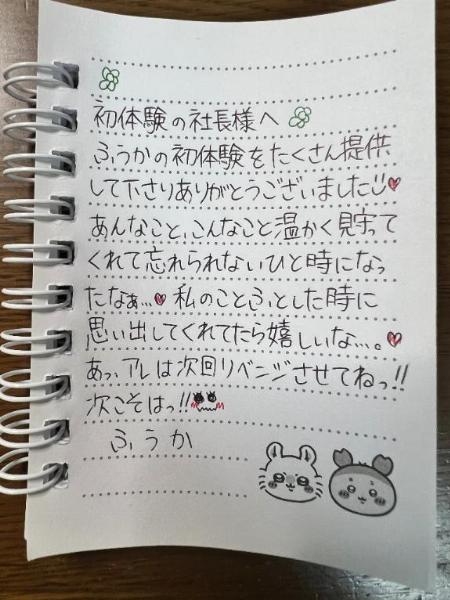 初体験の社長様へ
ふうかの初体験をたくさん提供
して下さりありがとうございました♥
あんなこと、こんなこと温かく見守って
くれて忘れられないひと時になっ
たなぁ…♥私のことふとした時に
思い出してくれてたら嬉しいな…。♥
あっ、アレは次回リベンジさせてねっ!!
次こそはっ!!
ふうか